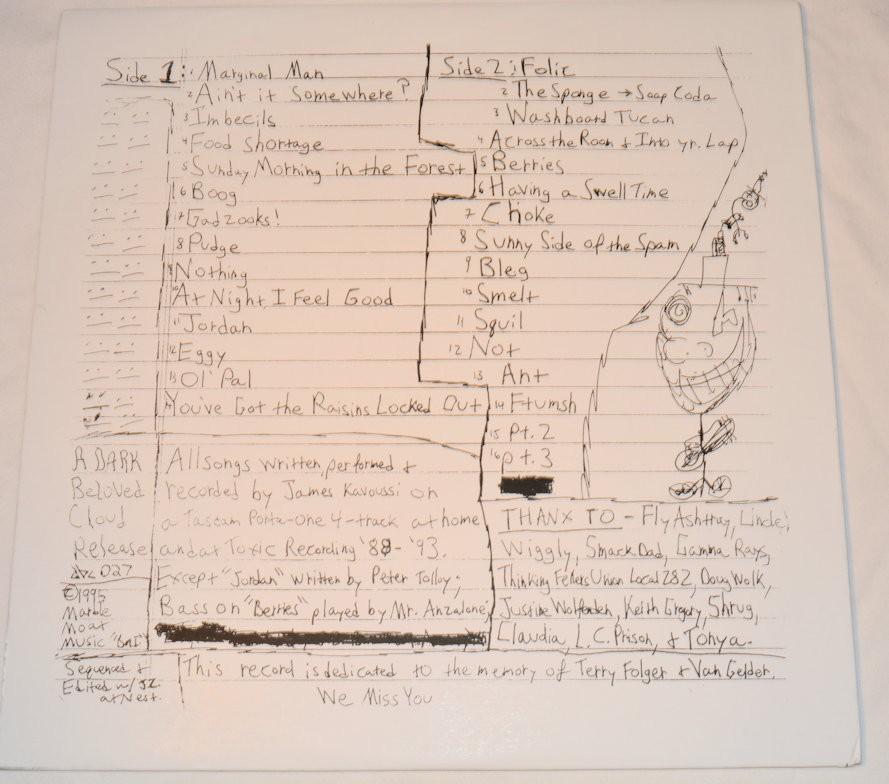 Side 1: 1 Marginal Man
2 Ain't it Somewhere?
3 Imbecils
4 Food Shortage
5 Sunday Morning in the Forest
6 Boog
7 Gadzooks!
8 Pudge
9 Nothing
10 At Night, I Feel Good
11 Jordan
12 Eggy
13 Ol' Pal
14 You've Got the Raisins Locked Out
Side 2: Folic
2 The Sponge → Soap Coda
3 Washboard Tucan
4 Across the Room & Into yr. Lap
5 Berries
6 Having a Swell Time
7 Choke
8 Sunny Side of the Spam
9 Bleg
10 Smelt
11 Squil
12 Not
13 Ant
14 Ftumsh
15 Pt. 2
16 pt. 3
A DARK
Beloved
Cloud
Release
DBC 027
©1995
Marble
Moat
Music "BMI"
Sequenced &
Edited w/ J.Z.
at Nest.
All songs written, performed &
recorded by James Kavoussi on
a Tascam Porta-one 4-track at home
and at Toxic Recording '88-'93.
Except "Jordan" written by Peter
Bass on "Berries" played by Mr. Anzalone;
THANX TO - Fly Ashtray, Uncle
Wiggly, Smack Dad, Gamma Rays,
Thinking Fellers Union Local 282, Doug Wolk,
Justine Wolfenden, Keith Gregory, Shrug,
Claudia, L.C. Prison, & Tonya.
This record is dedicated to the memory of Terry Folger & Van Gelder.
We Miss You